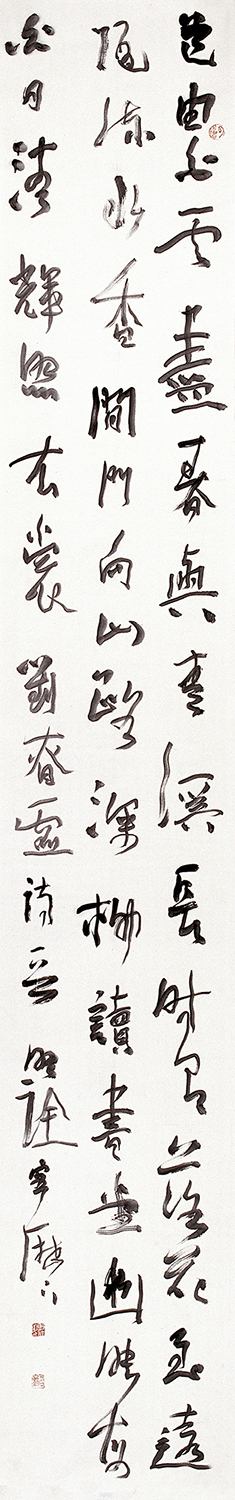 道由白云盡春與青溪長時有落花至遠
隨流水香閒門向山路深柳讀書堂幽映每
白日清輝照衣裳劉昚虛詩